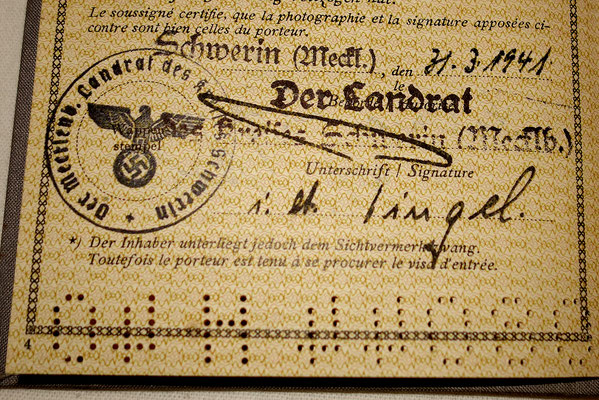 Le soussigné certifie, que la photographie et la signature apposées ci-
contre sont bien celles du porteur.
Schwerin (Meckl.), den 31.3.1941
le
Der Landrat
des Kreises Schwerin (Mecklb.)
Wappen-
stempel
Der Mecklenb. Landrat des Kreises Schwerin
Unterschrift / Signature
i. A. Tingel.
*) Der Inhaber unterliegt jedoch dem Sichtvermerkzwang.
Toutefois le porteur est tenu à se procurer le visa d'entrée.
4